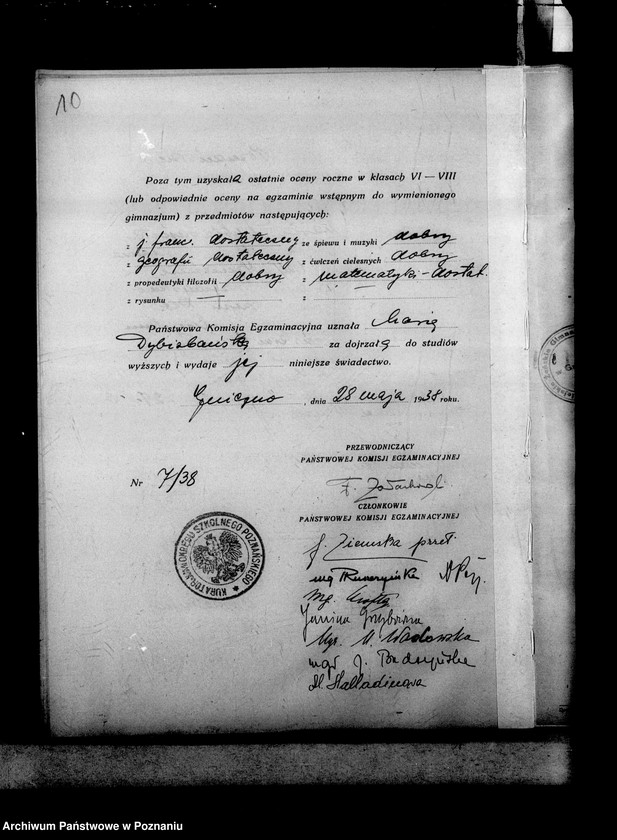 10
Poza tym uzyskała ostatnie oceny roczne w klasach VI — VIII
(lub odpowiednie oceny na egzaminie wstępnym do wymienionego
gimnazjum) z przedmiotów następujących:
z j. franc. dostateczny ze śpiewu i muzyki dobry
z geografii dostateczny z ćwiczeń cielesnych dobry
z propedeutyki filozofii dobry z matematyki - dostat.
z rysunku — z
Państwowa Komisja Egzaminacyjna uznała Marię
za dojrzałą do studiów
wyższych i wydaje jej niniejsze świadectwo.
Gniezno, dnia 28 maja 1938 roku.
PRZEWODNICZĄCY
PAŃSTWOWEJ KOMISJI EGZAMINACYJNEJ
Nr 7/38
CZŁONKOWIE
PAŃSTWOWEJ KOMISJI EGZAMINACYJNEJ
J. Ziemska
mgr
Mgr.
Janina
Mgr. M. Wadowska
mgr J.
M. Halladinowa
KURATORIUM OKRĘGU SZKOLNEGO POZNAŃSKIEGO
Archiwum Państwowe w Poznaniu